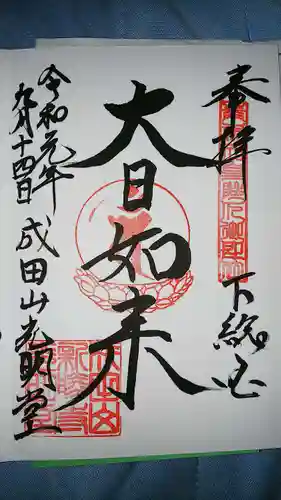 奉拝
下総国
大日如来
令和元年
九月十四日
成田山光明堂